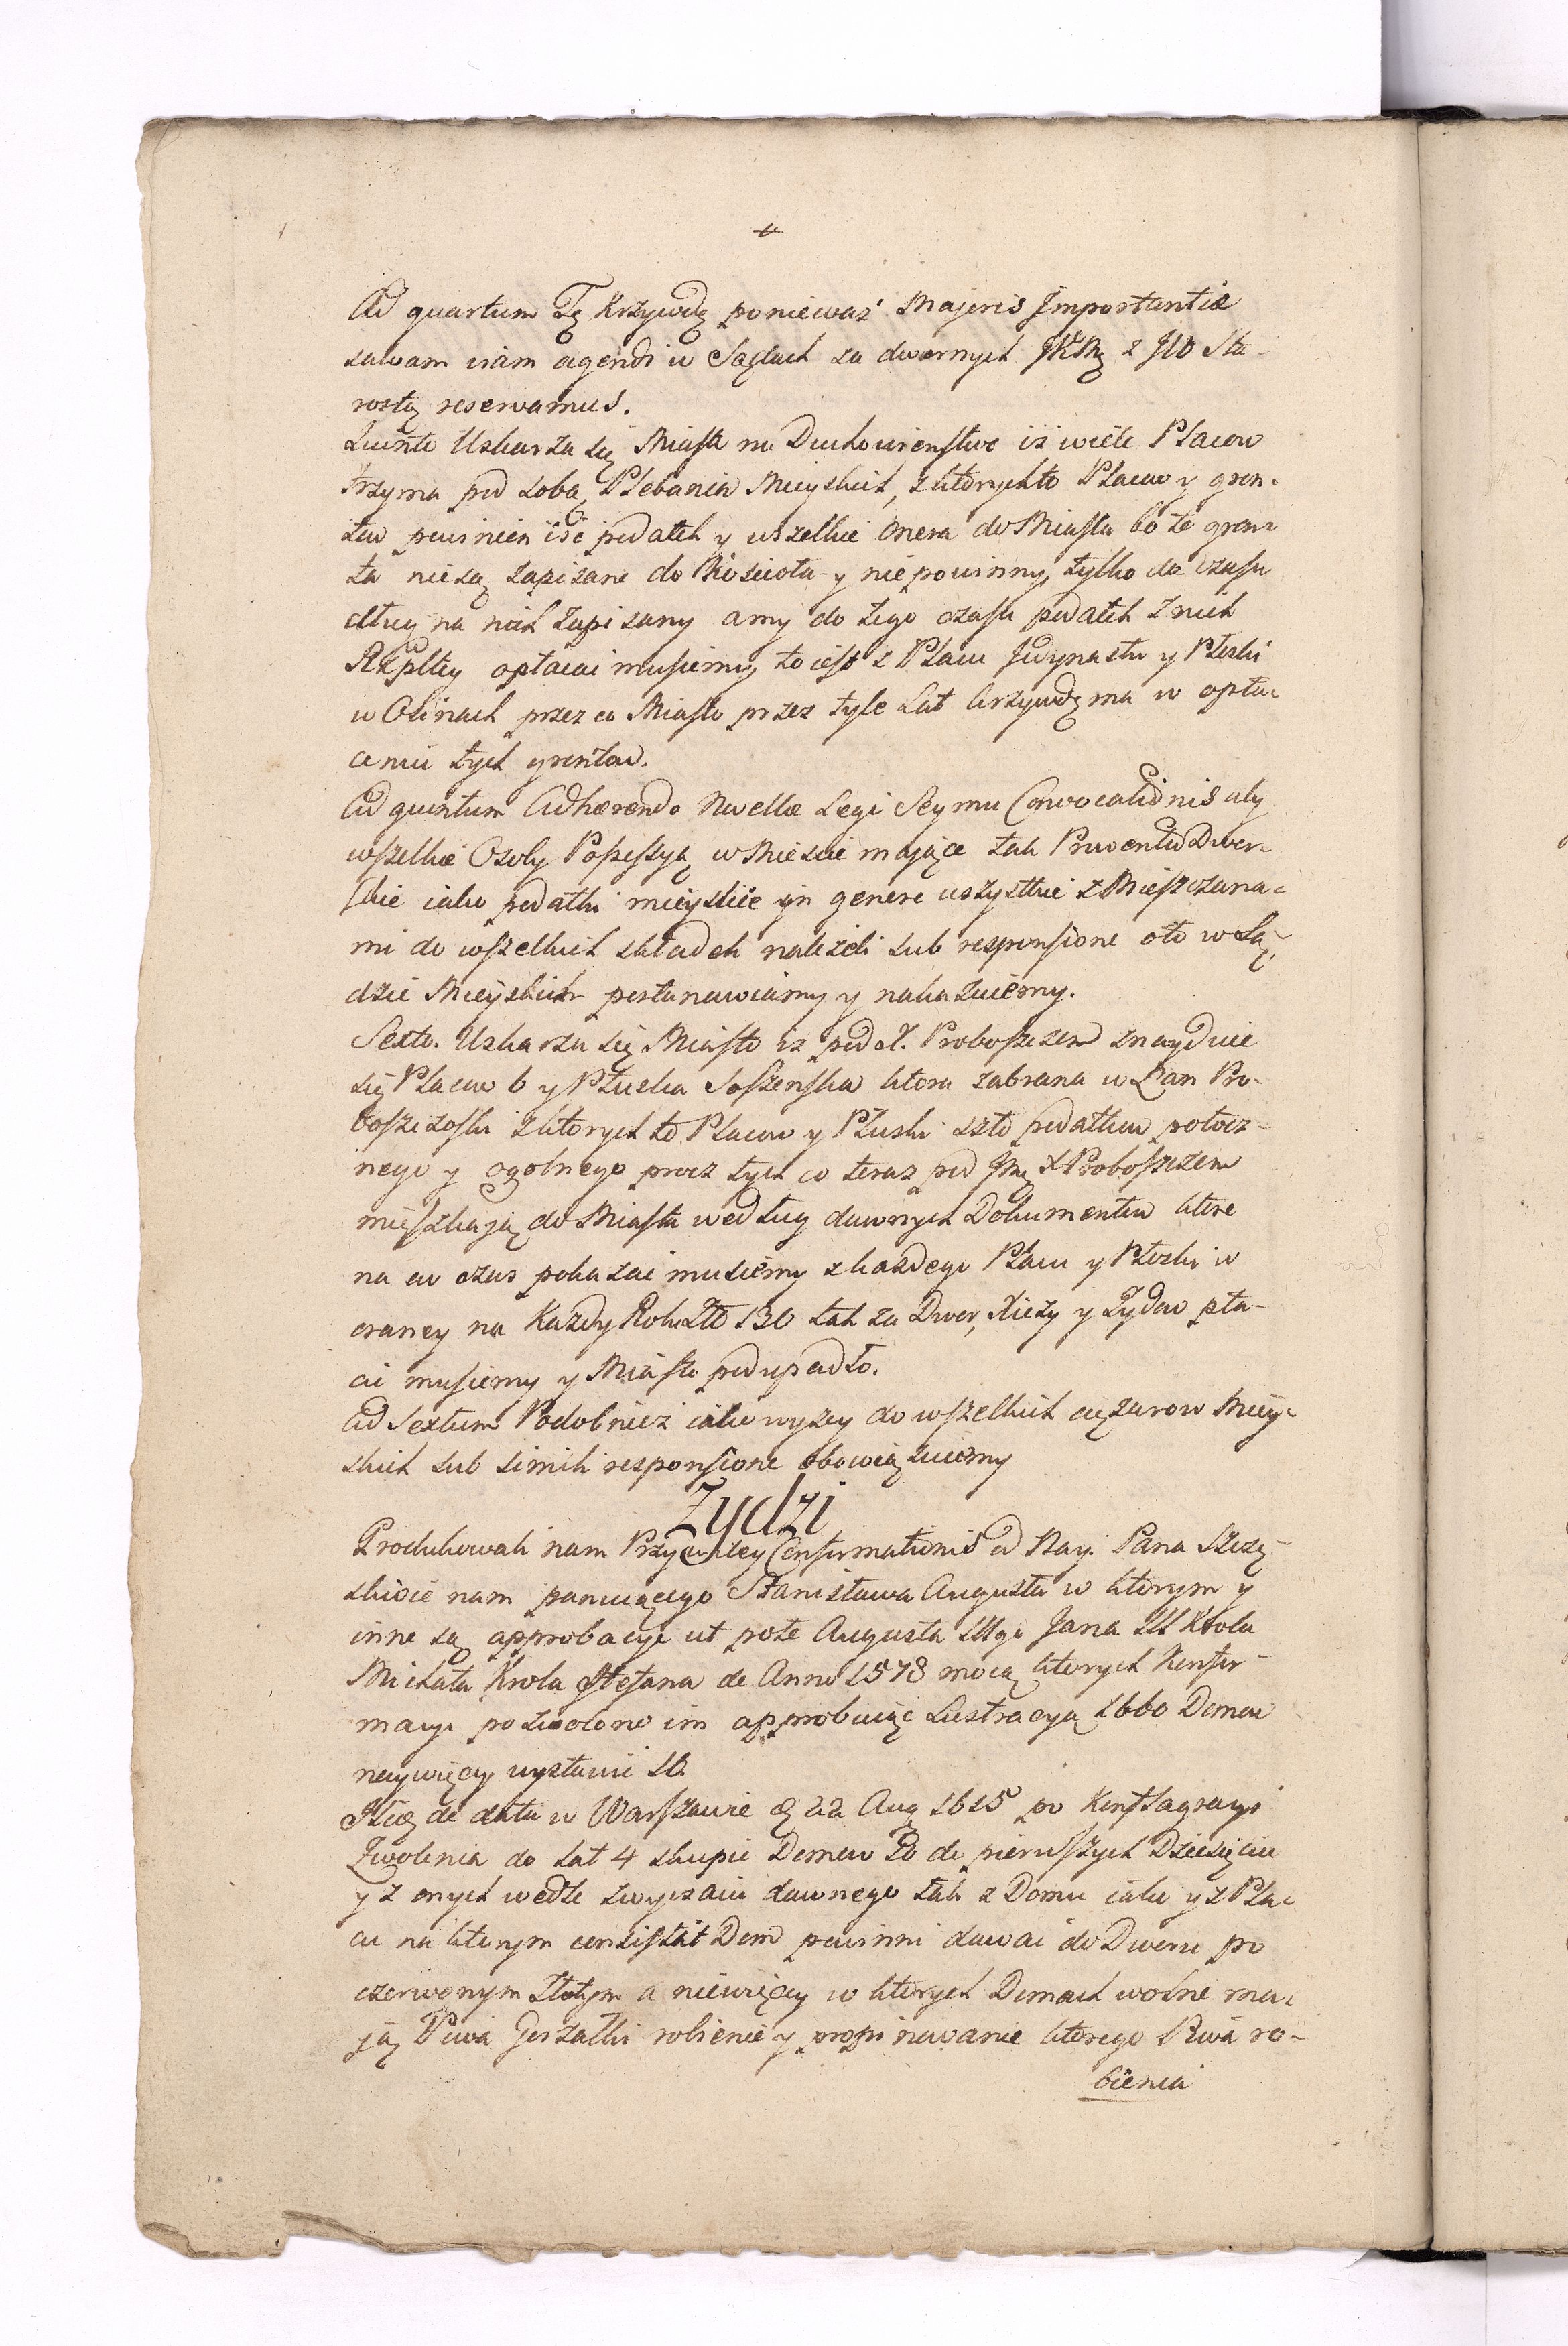 Ad quartum Tę Krzywdę ponieważ Majoris Importantiæ
salvam viam agendi w Sądach za dwornych JKMę z JW Sta-
rostą reservamus.
Quinto Uskarża się Miasto na Duchowienstwo iż wiele Placow
trzyma pod sobą Plebania Mieyskich, z ktorych to Placow y grun-
tow powinien iść podatek y wszelkie onera do Miasta bo te grun-
ta nie są zapisane do Koscioła y nie powinny, tylko do czasu
dług na nich zapisany a my do tego czasu podatek z nich
RZpltey opłacać musiemy, to iest z Placu Jedynastu y Płoski
w Olinach przez co Miasto przez tyle Lat krzywdę ma w opła-
ceniu tych gruntow.
Ad quintum Adhærendo Novellæ Legi Seymu Convocationis aby
wszelkie Osoby Possessyą w Miescie maiące tak Prowentu Dwor-
skie iako podatki mieyskie in genere wszystkie z Mieszczana-
mi do wszelkich składek należeli sub responsione oto w Są-
dzie Mieyskich postanawiamy y nakazuiemy.
Sexto. Uskarża się Miasto iz pod X. Proboszczem znayduie
się Placow 6 y Płucha Soszenska ktora zabrana w Łan Pro-
boszczoski z ktorych to Placow y Płuski szło podatkow potocz-
nego y ogolnego procz tych co teraz pod Jmę X Proboszczem
mięszkają do Miasta według dawnych Dokumentow ktore
na ow czas pokazać musiemy z każdego Placu y Płoski w
oraney na Każdy Rok Złł 130 tak za Dwor, Xięży y Żydow pła-
cić musiemy y Miasto podupadło.
Ad Sextum Podobniez iako wyzey do wszelkich ciężarow Miey-
skich sub simili responsione obowiązuiemy
Żydzi
Produkowali nam Przywiley Confirmationis od Nay. Pana Szczę-
sliwie nam panuiącego Stanisława Augusta w ktorym y
inne są approbacye ut pote Augusta IIIgo Jana III Krola
Michała Krola Stefana de Anno 1578 mocą ktorych Konfir-
macyi pozwolono im approbuiąc Lustracyą 1660 Domow
naywięcy wystawić 10.
Item de data w Warszawie D 22 Aug 1615 po Konflagracyi
Zwolenia do lat 4 skupić Domow 20 do pierwszych Dziesięciu
y z onych wedle zwyczaiu dawnego tak z Domu iako y z Pla-
cu na ktorym consistat Dom powinni dawać do Dworu po
czerwonym Złotym a niewięcy w ktorych Domach wolne ma-
ją Piwa Gorzałki robienie y propinowanie ktorego Piwa ro-
bienia